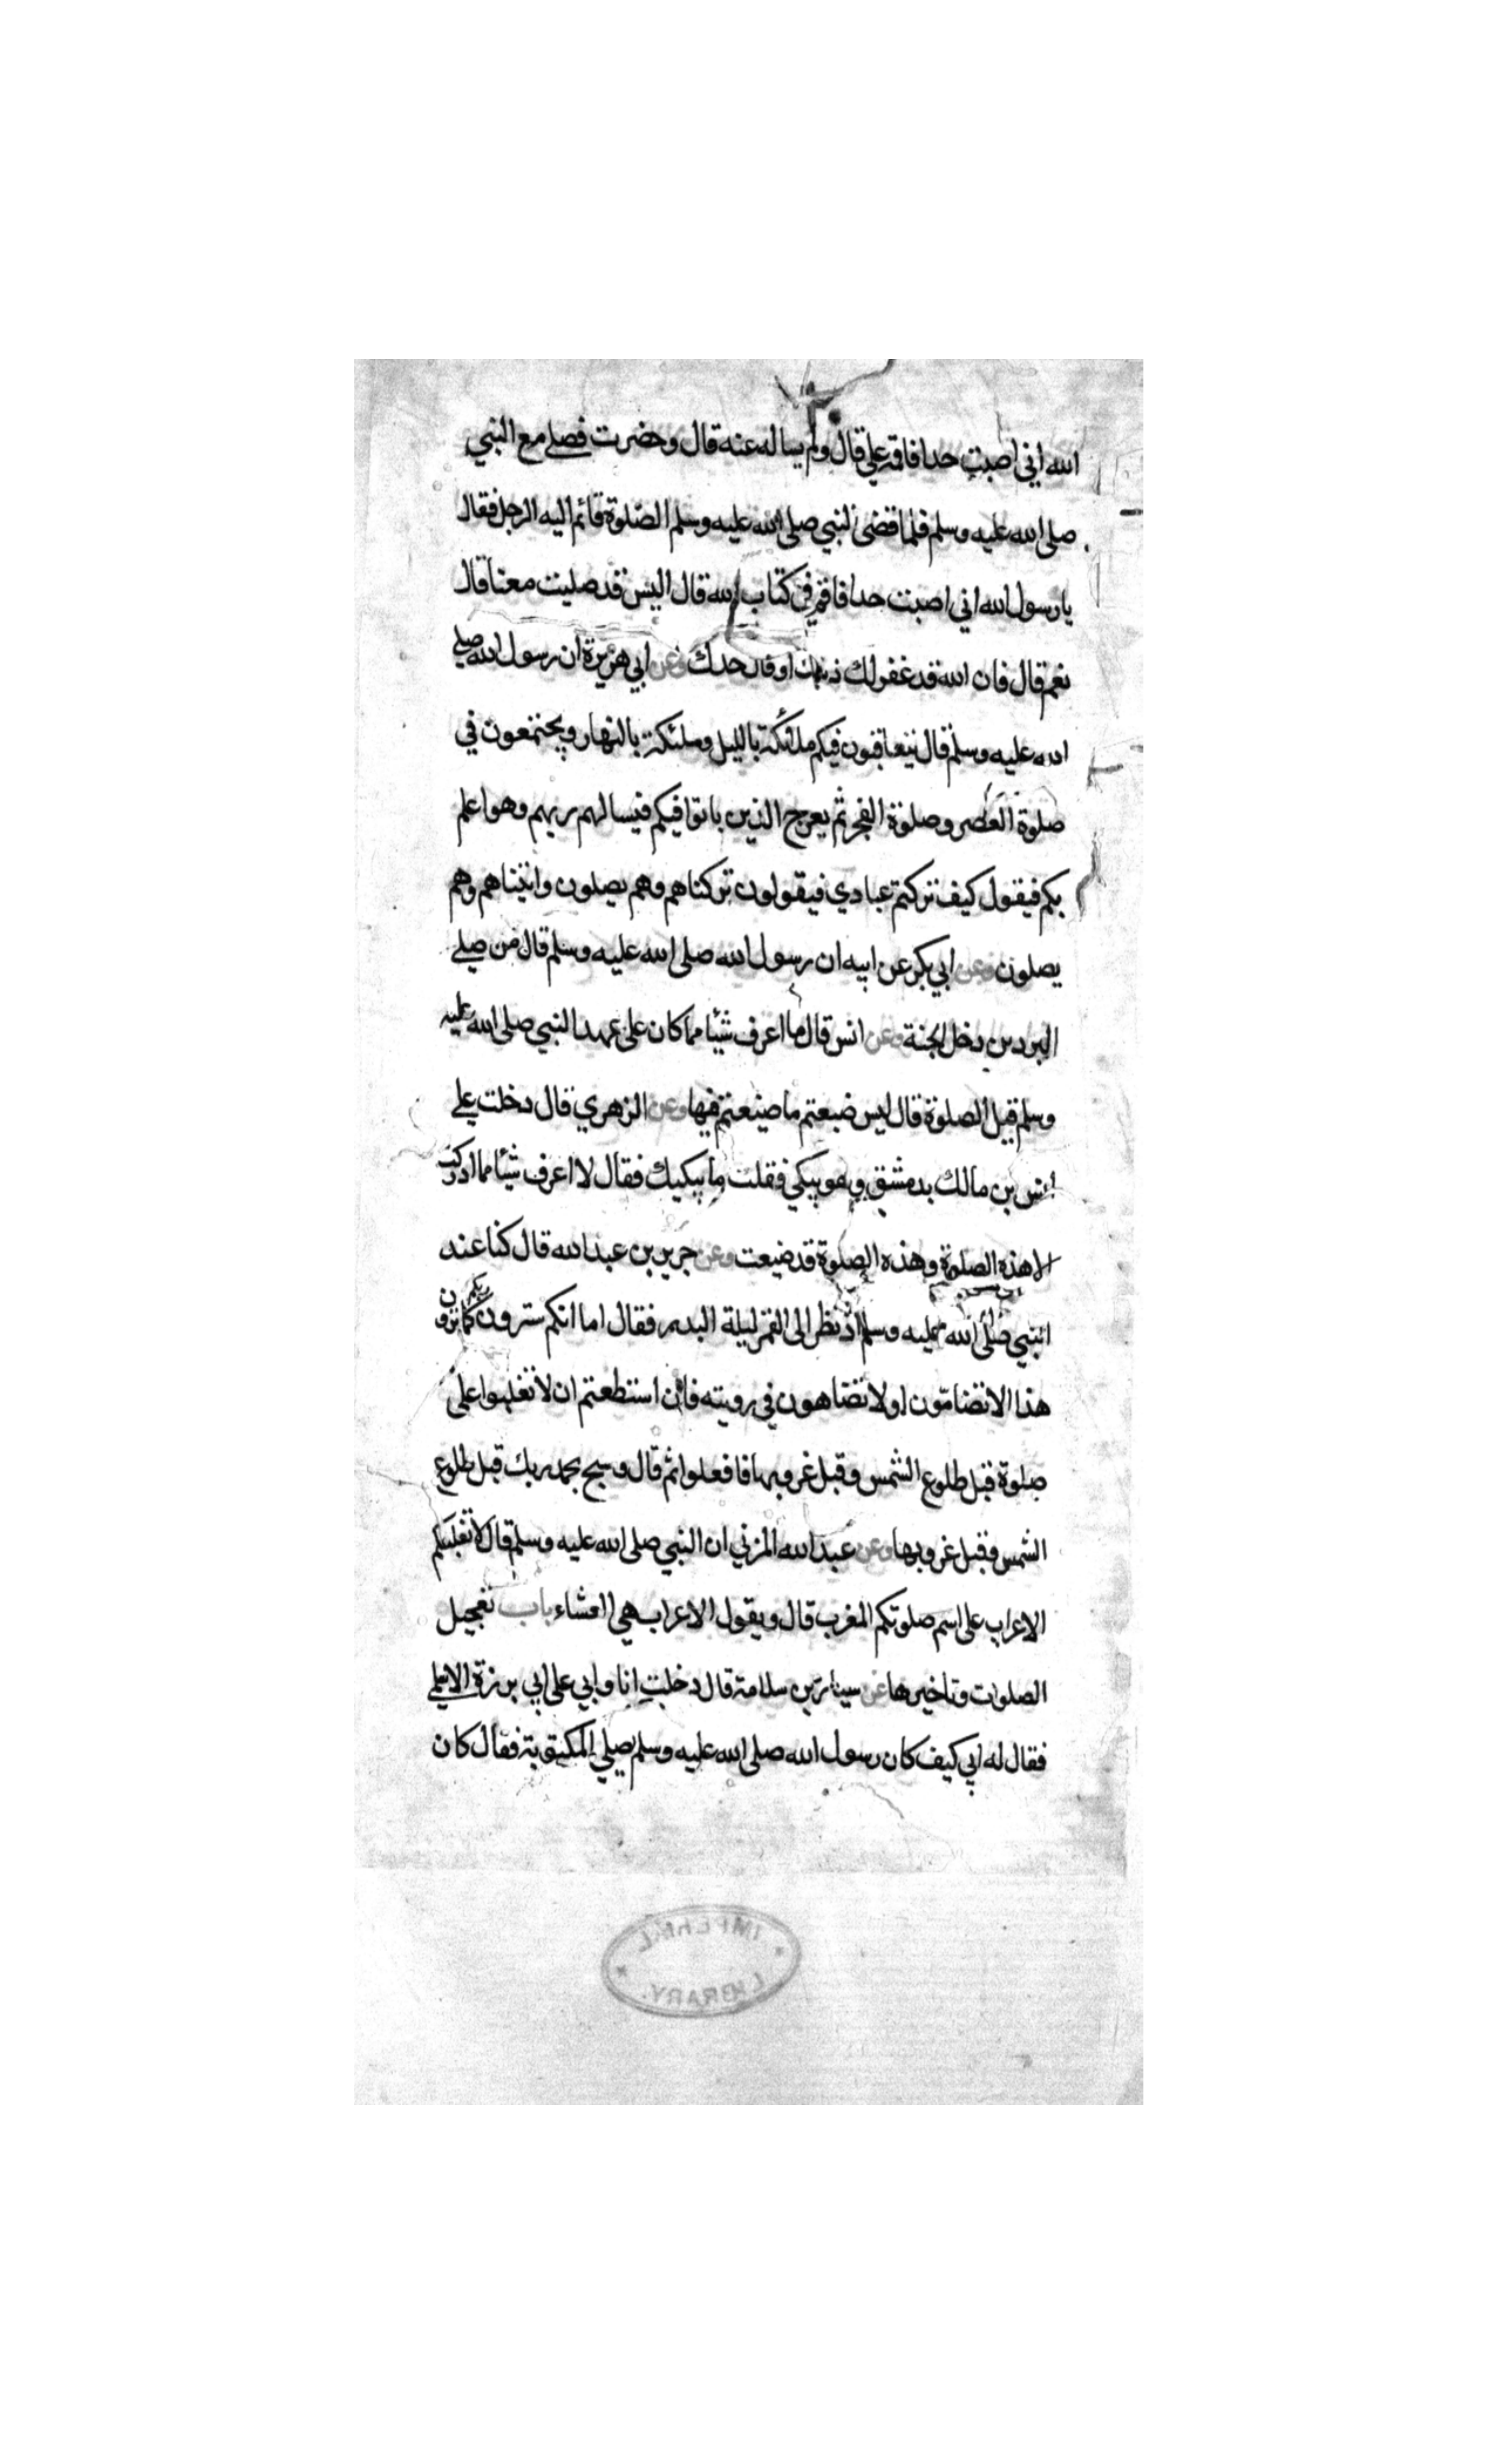 الله اني اصبت حدا فاقمه علي قال ولم يساله عنه قال وحضرت فصلى مع النبي
صلى الله عليه وسلم فلما قضى النبي صلى الله عليه وسلم الصلوة قائم اليه الرجل فقال
يا رسول الله اني اصبت حدا فاقم في كتاب الله قال اليس قد صليت معنا قال
نعم قال فان الله قد غفر لك ذنبك او قال حدك وعن ابي هريرة ان رسول الله صلى
الله عليه وسلم قال يتعاقبون فيكم ملائكة بالليل وملئكة بالنهار ويجتمعون في
صلوة العصر وصلوة الفجر ثم يعرج الذين باتوا فيكم فيسالهم ربهم وهو اعلم
بكم فيقول كيف تركتم عبادي فيقولون تركناهم وهم يصلون واتيناهم وهم
يصلون وعن ابي بكر عن ابيه ان رسول الله صلى الله عليه وسلم قال من صلى
البردين دخل الجنة وعن انس قال ما اعرف شيئا مما كان على عهد النبي صلى الله عليه
وسلم قيل الصلوة قال ليس ضيعتم ما ضيعتم فيها وعن الزهري قال دخلت على
انس بن مالك بدمشق وهو يبكي فقلت ما يبكيك فقال لا اعرف شيئا مما ادركت
الا هذه الصلوة وهذه الصلوة قد ضيعت وعن جرير بن عبد الله قال كنا عند
النبي صلى الله عليه وسلم اذ نظر الى القمر ليلة البدر فقال اما انكم سترون ربكم كما ترون
هذا لا تضامون او لا تضاهون في رويته فان استطعتم ان لا تغلبوا على
صلوة قبل طلوع الشمس وقبل غروبها فافعلوا ثم قال وسبح بحمد ربك قبل طلوع
الشمس وقبل غروبها وعن عبد الله المزني ان النبي صلى الله عليه وسلم قال لا تغلبنكم
الاعراب على اسم صلوتكم المغرب قال ويقول الاعراب هي العشاء باب تعجيل
الصلوات وتاخيرها عن سيار بن سلامة قال دخلت انا وابي على ابي برزة الاسلمي
فقال له ابي كيف كان رسول الله صلى الله عليه وسلم يصلي المكتوبة فقال كان
IMPERIAL
LIBRARY.